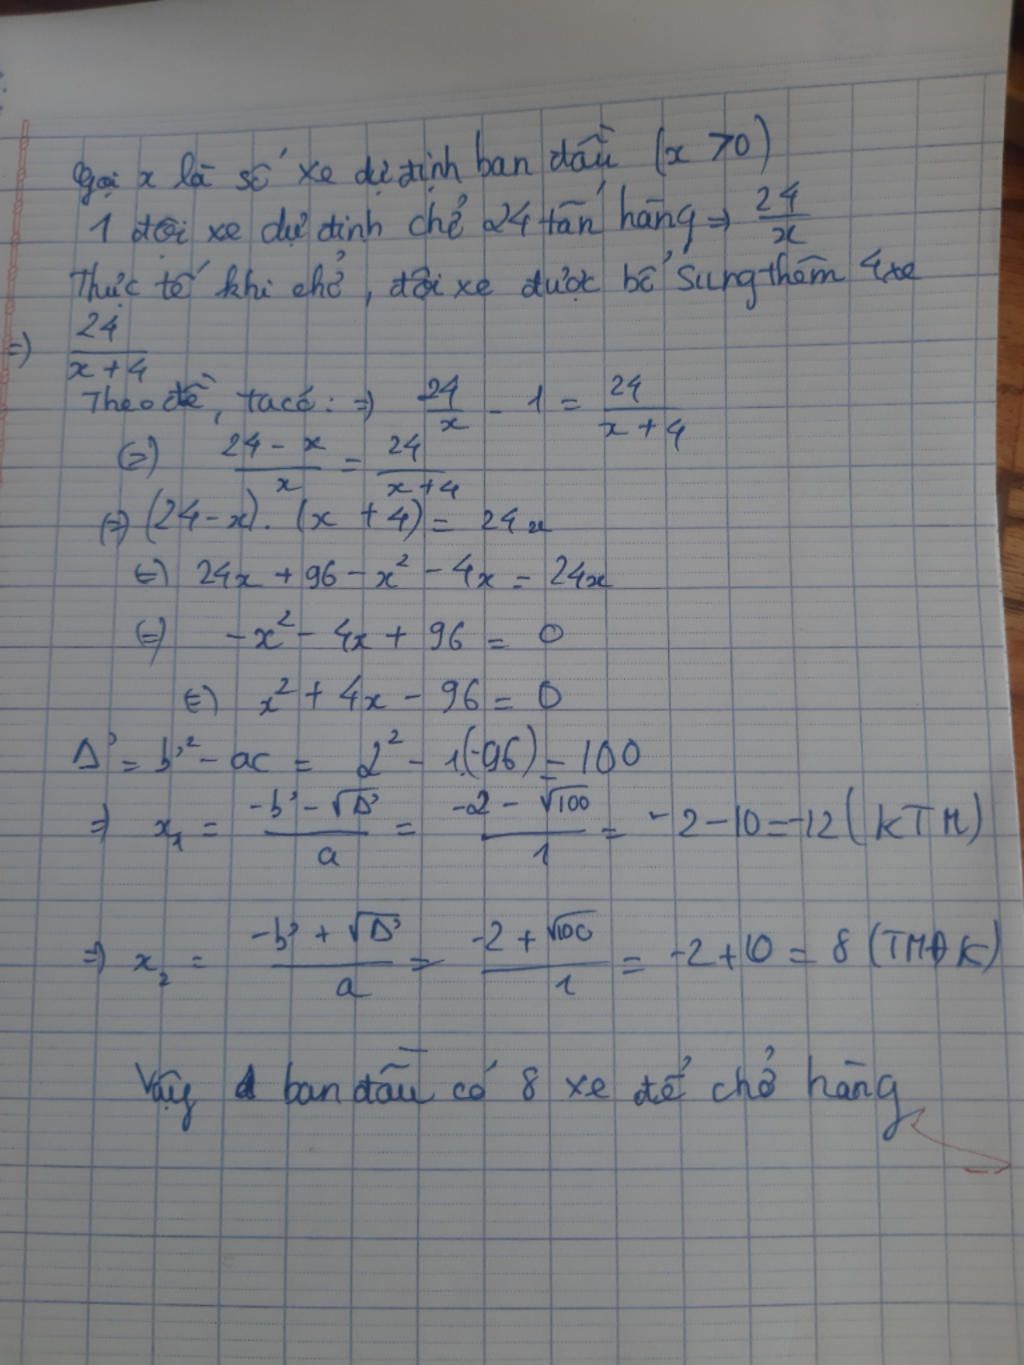 Gọi x là số xe dự định ban đầu (x > 0)
1 đội xe dự định chở 24 tấn hàng => 24/x
Thực tế khi chở, đội xe được bổ sung thêm 4 xe
=> 24/(x + 4)
Theo đề, ta có: => 24/x - 1 = 24/(x + 4)
(=) (24 - x)/x = 24/(x + 4)
(=) (24 - x) . (x + 4) = 24x
(=) 24x + 96 - x² - 4x = 24x
(=) -x² - 4x + 96 = 0
(=) x² + 4x - 96 = 0
Δ' = b'² - ac = 2² - 1(-96) = 100
=> x₁ = (-b' - √Δ')/a = (-2 - √100)/1 = -2 - 10 = -12 (KTM)
=> x₂ = (-b' + √Δ')/a = (-2 + √100)/1 = -2 + 10 = 8 (TMĐK)
Vậy ban đầu có 8 xe để chở hàng